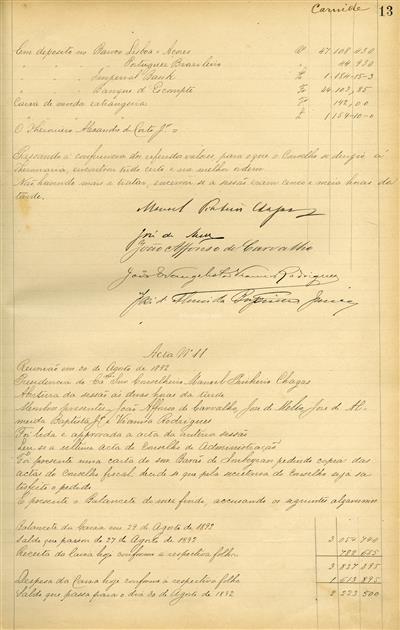 Carnide 13
Em deposito no Banco Lisboa e Açores 47.108.430
" " " Portuguez Brazileiro 44.930
" " " Imperial Bank £ 1.154-15-3
" " " Banque d'Escompte Fr 24.103,85
Caixa de moeda estrangeira Fr 142,00
" " " £ 1.154-10-0
O Thesoureiro Alexandre da Costa Jr.
Passando á conferencia dos referidos valores, para o que o Conselho se dirigiu á
thesouraria, encontrou tudo certo e na melhor ordem.
Não havendo mais a tratar, encerrou-se a sessão eram cinco e meia horas da
tarde.
Manuel Pinheiro Chagas
José de Mello
João Affonso de Carvalho
João Evangelista Vianna Rodrigues
José d'Almeida Baptista Junior
Acta Nº 11
Reunião em 30 de Agosto de 1892
Presidencia do Exmo Snr Conselheiro Manuel Pinheiro Chagas
Abertura da sessão ás duas horas da tarde
Membros presentes, João Affonso de Carvalho, José de Mello, José de Al-
meida Baptista Jr. e Vianna Rodrigues
Foi lida e approvada a acta da anterior sessão
Leu-se a ultima acta do Conselho de Administração
Foi presente uma carta do Snr Barão de pedindo copia das
actas do Conselho fiscal, decide-se que pela secretaria do Conselho seja sa-
tisfeito o pedido
É presente o Balancete do mez findo, accusando os seguintes algarismos
Balancete da Caixa em 29 de Agosto de 1892
Saldo que passou de 27 de Agosto de 1892 3.054.740
Receita da Caixa hoje conforme a respectiva folha 782.655
3.837.395
Despeza da Caixa hoje conforme a respectiva folha 1.613.895
Saldo que passa para o dia 30 de Agosto de 1892 2.223.500